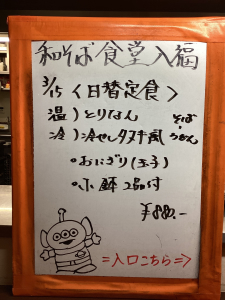 和そば食堂入福
3/15 〈日替定食〉
温)とりなん
そば
冷)冷やしタヌキ風
うどん
・おにぎり(玉子)
・小鉢 2品付
¥880.-
=入口こちら⇒